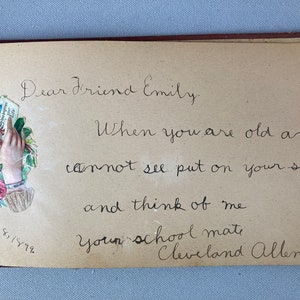 Dear Friend Emily
When you are old a
cannot see put on your s
and think of me
Your school mate
Cleveland Allen
8, 1898